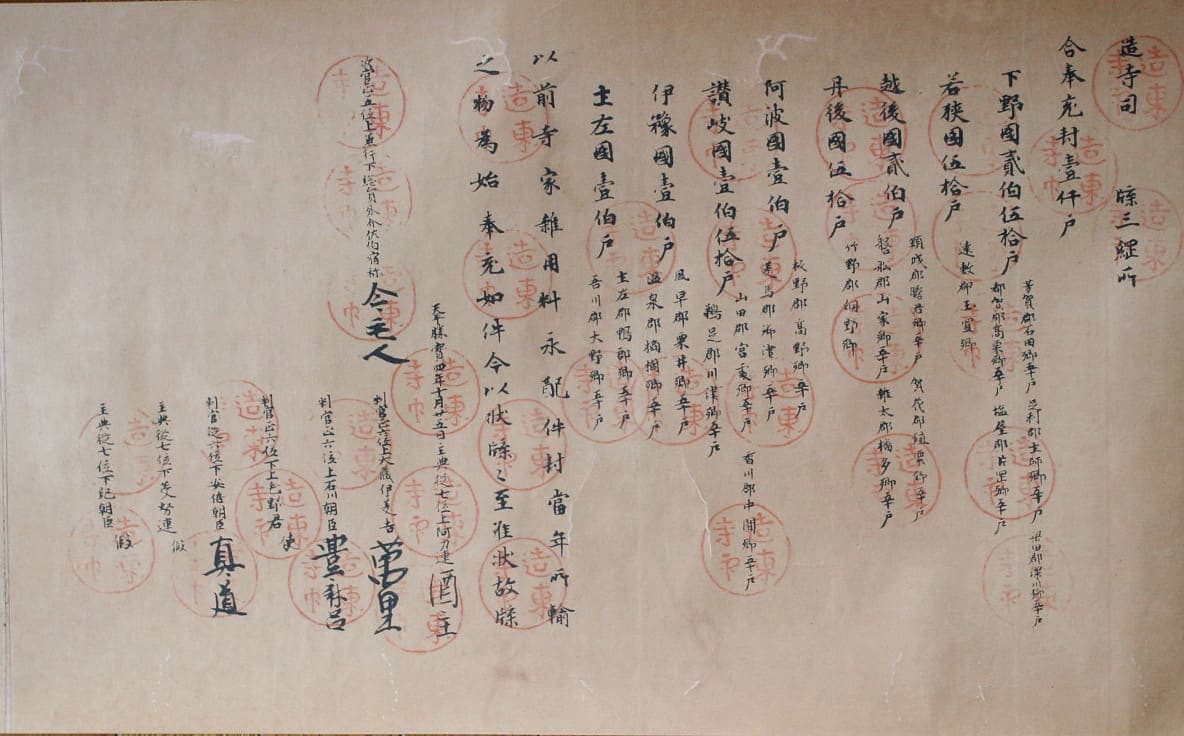 造寺司 牒三綱所
合奉充封壹仟戸
下野國貳伯伍拾戸 芳賀郡石田郷五十戸 足利郡土師郷五十戸 梁田郡深川郷五十戸
都賀郡高栗郷五十戸 塩屋郡片罡郷五十戸
若狭國伍拾戸 遠敷郡玉置郷
越後國貳伯戸 頸城郡膽君郷五十戸 賀茂郡殖栗郷五十戸
磐船郡山家郷五十戸 雜太郡幡多郷五十戸
丹後國伍拾戸 竹野郡網野郷
阿波國壹伯戸 板野郡高野郷五十戸
美馬郡御津郷五十戸
讃岐國壹伯伍拾戸 山田郡宮處郷五十戸 香川郡中間郷五十戸
鵜足郡川津郷五十戸
伊豫國壹伯戸 風早郡粟井郷五十戸
温泉郡橘樹郷五十戸
土左國壹伯戸 土左郡鴨部郷五十戸
吾川郡大野郷五十戸
以前寺家雜用料永配件封當年所輸
之物爲始奉充如件今以状牒々至准状故牒
天平勝寳四年十月廿五日主典従七位上阿刀連酒主
次官正五位上兼行下総員外介佐伯宿祢今毛人 判官正六位上大蔵伊美吉萬里
判官正六位上石川朝臣豊麻呂
判官正六位下上毛野君
判官従六位下安倍朝臣真道
主典従七位下美努連 假
主典従七位下紀朝臣 假